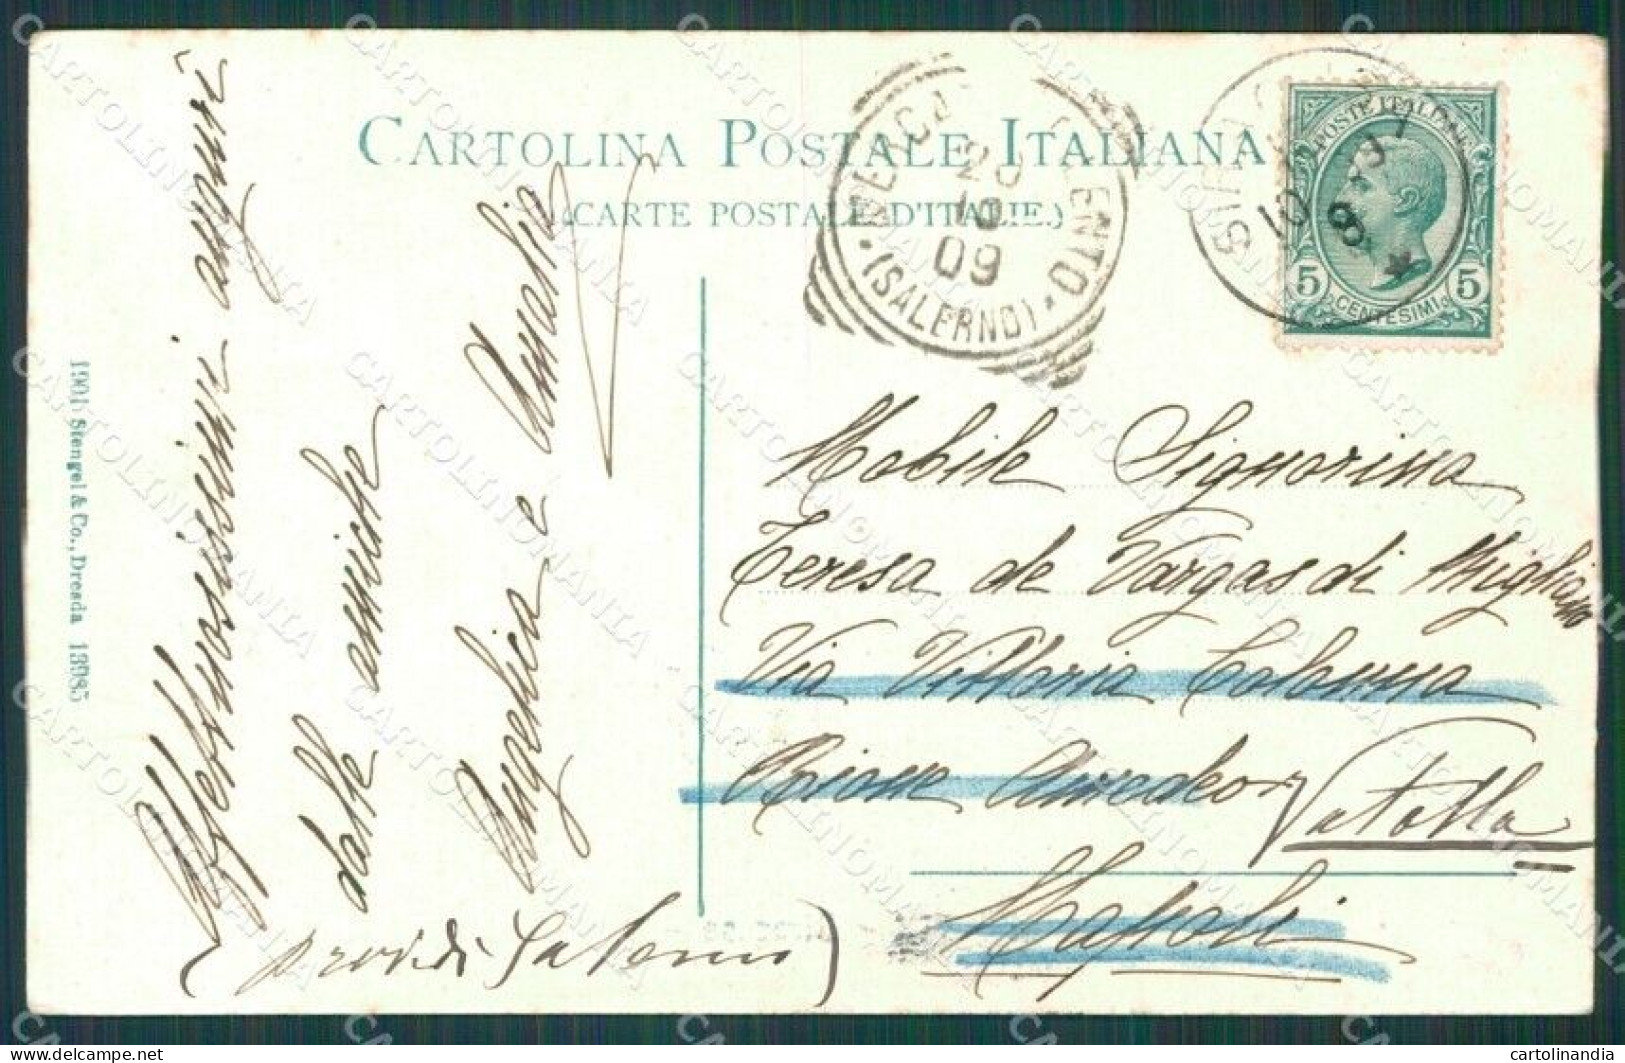 CARTOLINA POSTALE ITALIANA
(CARTE POSTALE D'ITALIE.)
POSTE ITALIANE
5 CENTESIMI 5
20
10
09
(SALERNO)
Affettuosissimi auguri
dalle amiche
Angelica e Amalia
Nobile Signorina
Teresa de Vargas di Migliano
Via Vittoria Colonna
Rione Amedeo
Vatolla
Napoli
(prov. di Salerno)
Stengel & Co., Dresda 13985
CARTOLINOMANIA
delcampe.net
cartolinandia